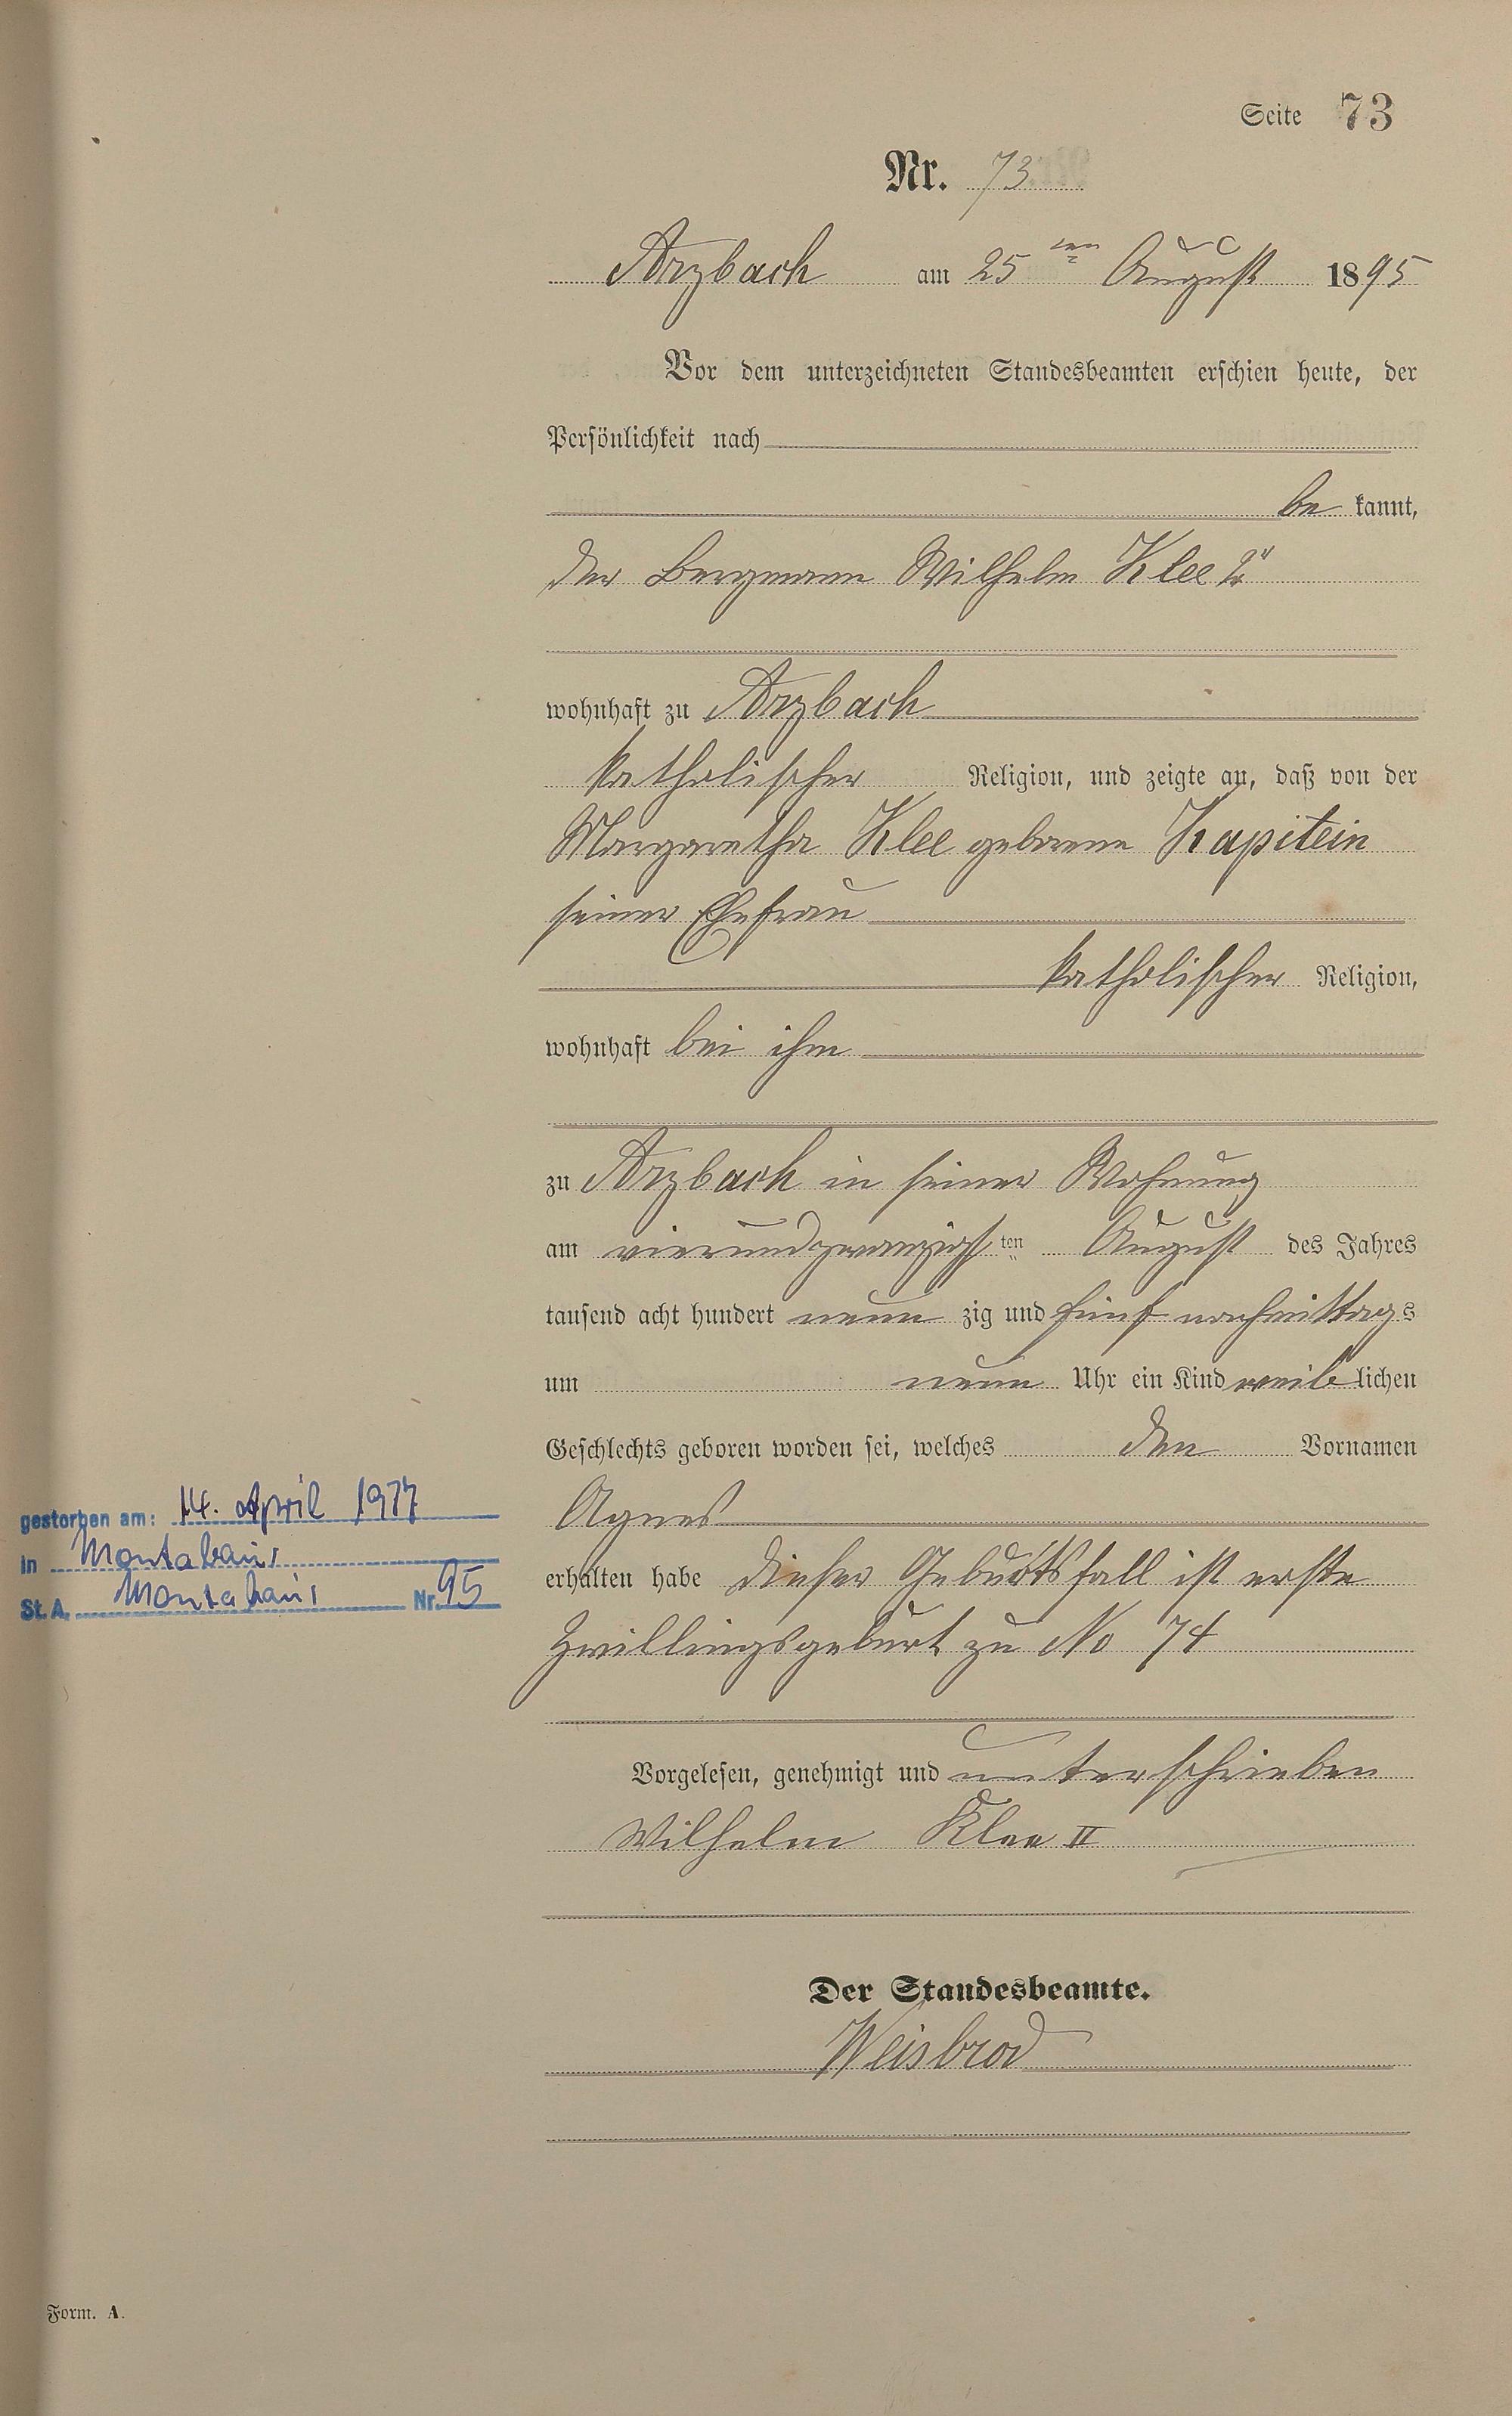 Seite 73
Nr. 73
Arzbach am 25 ten August 1895
Vor dem unterzeichneten Standesbeamten erschien heute, der
Persönlichkeit nach
be kannt,
der Bergmann Wilhelm Klee 2r
wohnhaft zu Arzbach
katholischer Religion, und zeigte an, daß von der
Margaretha Klee geborene Kapitein
seiner Ehefrau
katholischer Religion,
wohnhaft bei ihm
zu Arzbach in seiner Wohnung
am vierundzwanzigsten August des Jahres
tausend acht hundert neun zig und fünf nachmittags
um neun Uhr ein Kind weiblichen
Geschlechts geboren worden sei, welches den Vornamen
Agnes
erhalten habe dieser Geburtsfall ist erste
Zwillingsgeburt zu No 74
Vorgelesen, genehmigt und unterschrieben
Wilhelm Klee II
Der Standesbeamte.
Weisbrod
gestorben am: 14. April 1977
in Montabaur
St. A. Montabaur Nr. 95
Form. A.